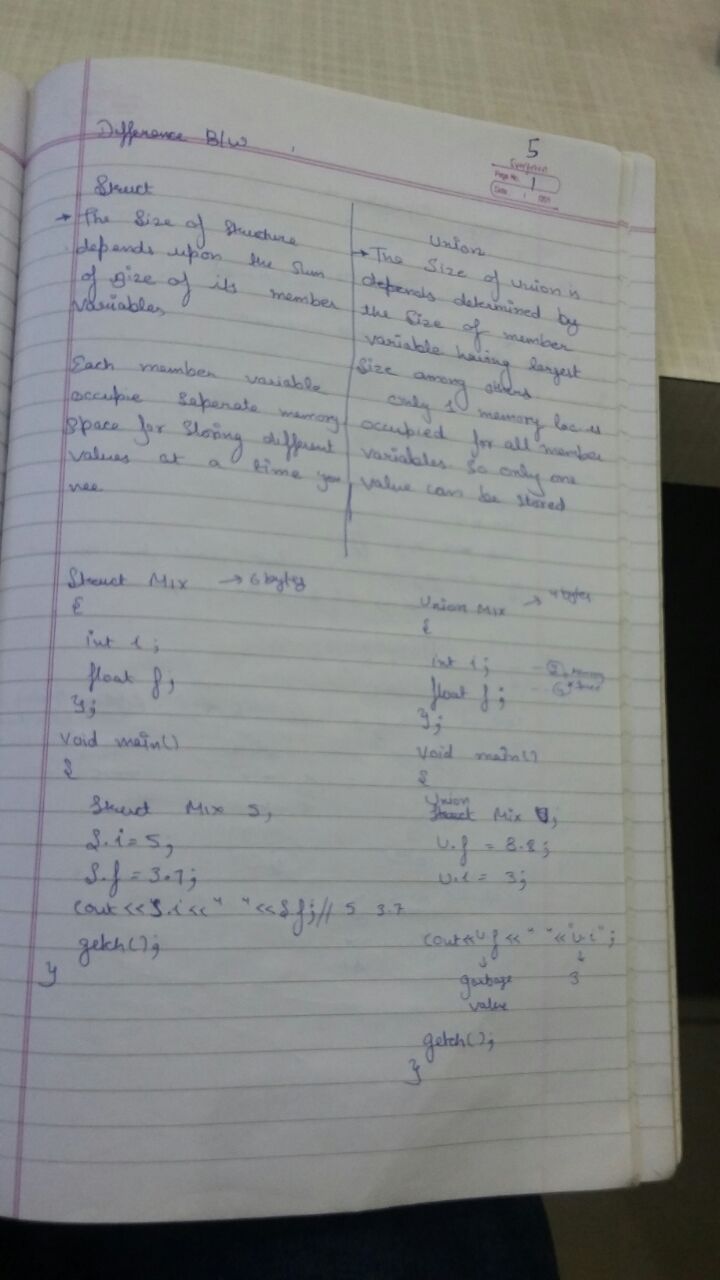 Difference B/W
5
Evergreen
Page No. 1
Date / /201
Struct
→ The Size of Structure
depends upon the sum
of size of its member
variables
Each member variable
occupie seperate memory
space for storing different
values at a time you
Union
→ The Size of union is
depends determined by
the size of member
variable having largest
size among others
only 1 memory loc is
occupied for all member
variables. So only one
value can be stored
Struct Mix → 6 bytes
{
int i;
float f;
};
void main()
{
Struct Mix S;
S.i = 5;
S.f = 3.7;
cout << S.i << " " << S.f; // 5 3.7
getch();
}
Union Mix → 4 bytes
{
int i;
float f;
};
void main()
{
Union
Struct Mix U;
U.f = 8.8;
U.i = 3;
cout << U.f << " " << "U.i";
↓ ↓
garbage 3
value
getch();
}